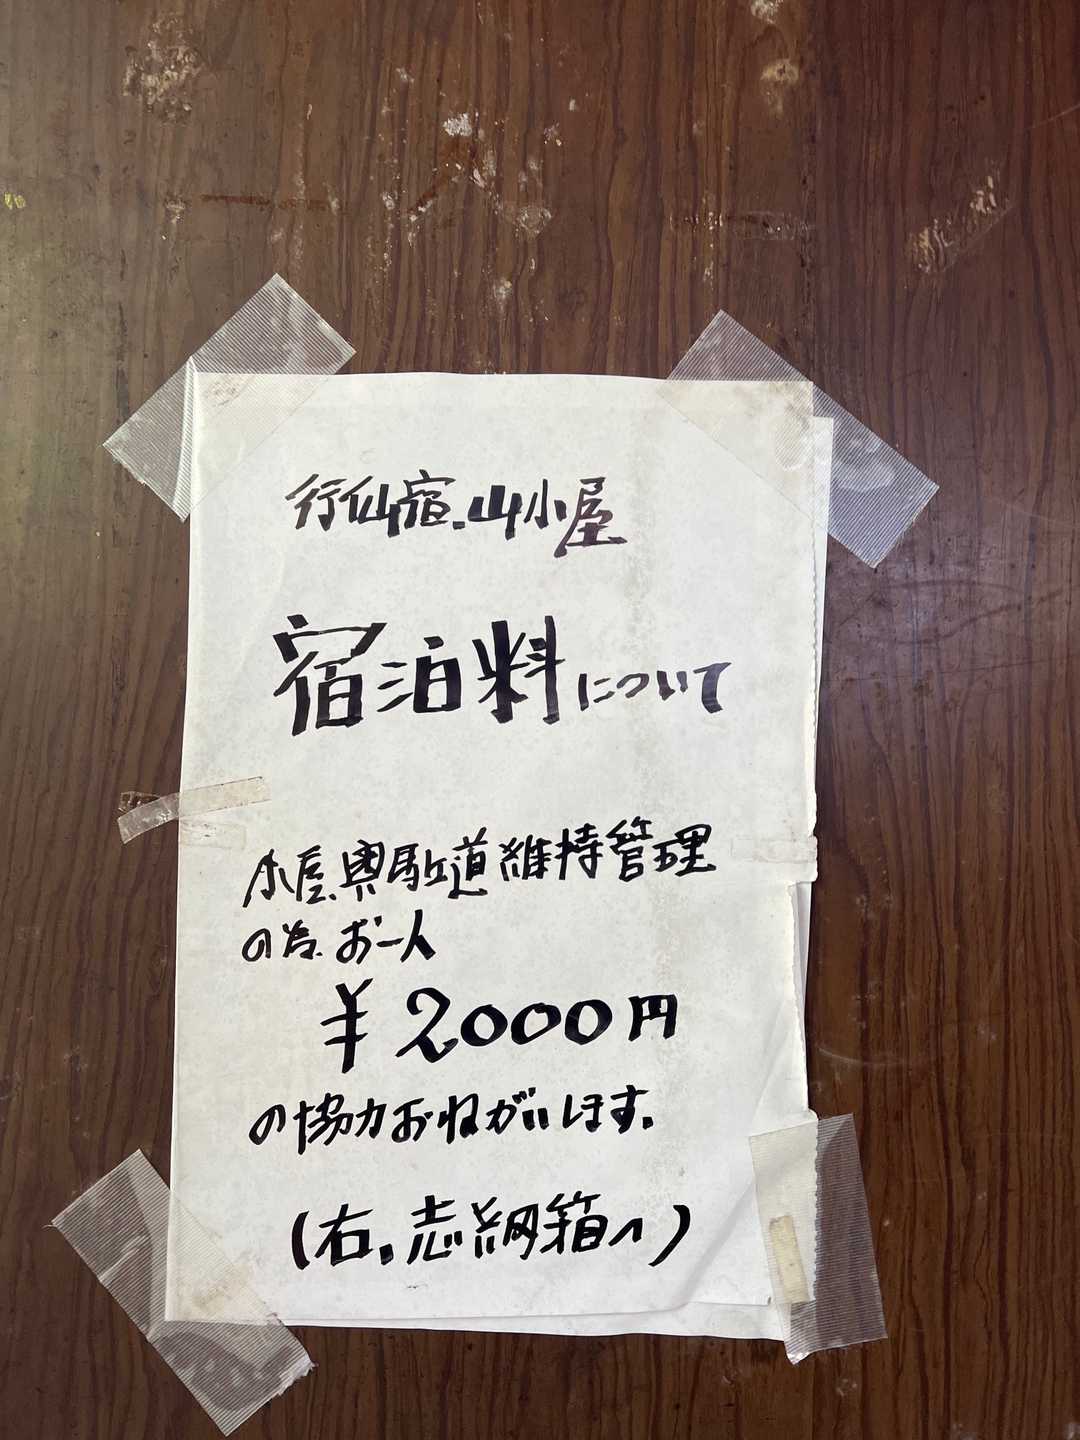 行仙宿.山小屋
宿泊料について
小屋.奥駈道維持管理
の為.お一人
¥2000円
の協力おねがいします.
(右.志納箱へ)